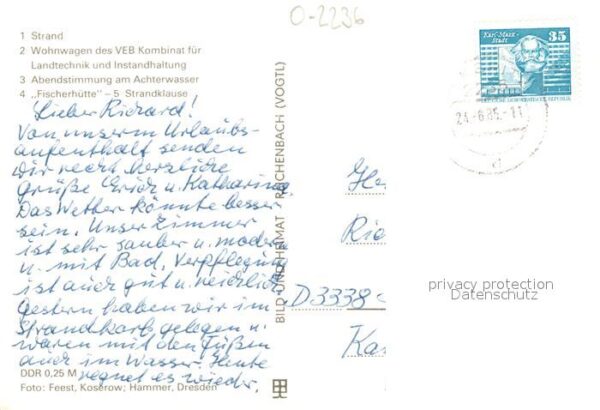 O-2236
1 Strand
2 Wohnwagen des VEB Kombinat für
Landtechnik und Instandhaltung
3 Abendstimmung am Achterwasser
4 „Fischerhütte" – 5 Strandklause
Lieber Richard!
Von unserm Urlaubs-
aufenthalt senden
wir recht herzliche
grüße Erich u. Katharina,
Das Wetter könnte besser
sein. Unser Zimmer
ist sehr sauber u. modern
u. mit Bad. Verpflegung
ist auch gut u. reichlich
Gestern haben wir im
Strandkorb gelegen u.
waren mit den Füßen
auch im Wasser. Heute
regnet es wieder.
DDR 0,25 M
Foto: Feest, Koserow; Hammer, Dresden
BILD UND HEIMAT REICHENBACH (VOGTL)
Karl-Marx-
Stadt
35
DEUTSCHE DEMOKRATISCHE REPUBLIK
21-6.85-11
He
Ric
D3338
Ka
privacy protection
Datenschutz